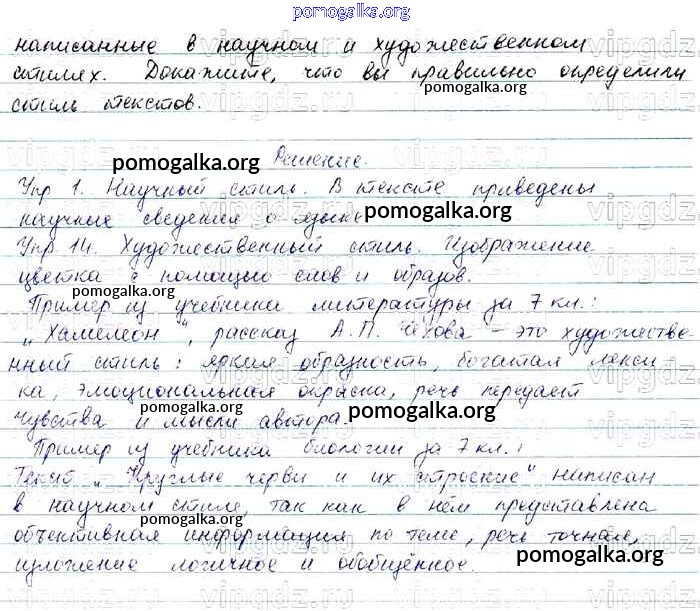 pomogalka.org
написанные в научном и художественном
стилях. Докажите, что вы правильно определили
pomogalka.org
стиль текстов.
Решение.
pomogalka.org
Упр 1. Научный стиль. В тексте приведены
научные сведения о языке
pomogalka.org
Упр 14. Художественный стиль. Изображение
цветка с помощью слов и образов.
pomogalka.org
Пример из учебника литературы за 7 кл.:
„Хамелеон", рассказ А.П. Чехова - это художестве-
pomogalka.org
нный стиль: яркая образность, богатая лекси
ка, эмоциональная окраска, речь передаёт
чувства и мысли автора.
pomogalka.org
pomogalka.org
Пример из учебника биологии за 7 кл.:
Текст „Круглые черви и их строение" написан
в научном стиле, так как в нём представлена
pomogalka.org
объективная информация по теме, речь точная,
изложение логичное и обобщённое.
pomogalka.org